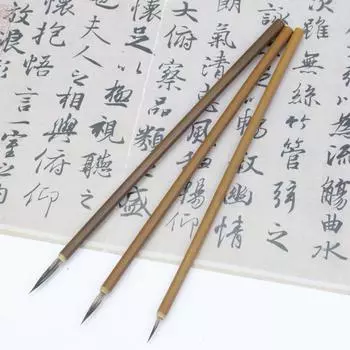 流觴曲水
無絲竹管弦之
足以暢敘幽情
氣清惠風和暢仰
大俯察品類之盛
懷足以極視聽之
也夫人之相與俯仰
懷抱悟言一室之
放浪